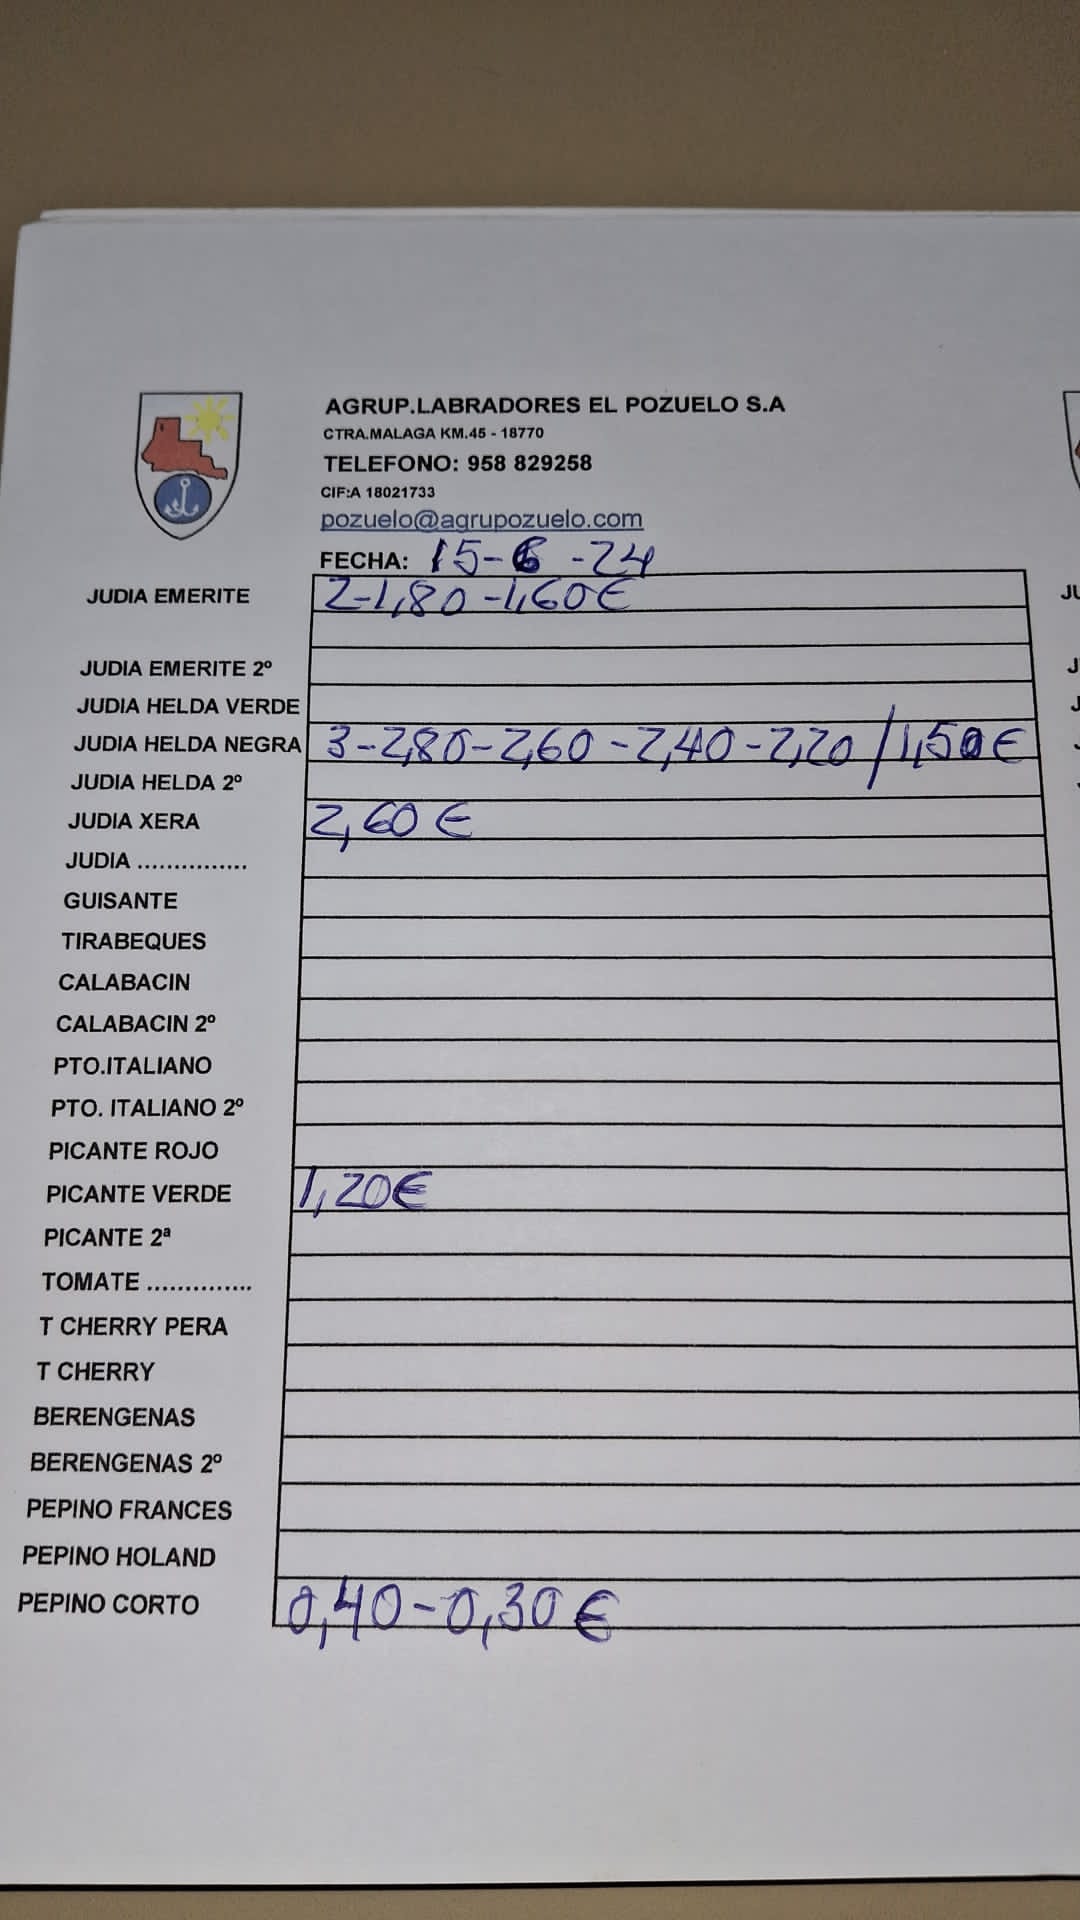 AGRUP.LABRADORES EL POZUELO S.A
CTRA.MALAGA KM.45 - 18770
TELEFONO: 958 829258
CIF:A 18021733
pozuelo@agrupozuelo.com
FECHA: 15-6-24
JUDIA EMERITE 2-1,80-1,60€
JUDIA EMERITE 2º
JUDIA HELDA VERDE
JUDIA HELDA NEGRA 3-2,80-2,60-2,40-2,20/1,50€
JUDIA HELDA 2º
JUDIA XERA 2,60€
JUDIA ...............
GUISANTE
TIRABEQUES
CALABACIN
CALABACIN 2º
PTO.ITALIANO
PTO. ITALIANO 2º
PICANTE ROJO
PICANTE VERDE 1,20€
PICANTE 2ª
TOMATE ..............
T CHERRY PERA
T CHERRY
BERENGENAS
BERENGENAS 2º
PEPINO FRANCES
PEPINO HOLAND
PEPINO CORTO 0,40-0,30€